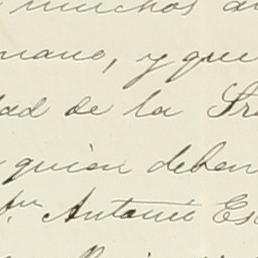 muchos
mano, y que
dad de la Sra
quien deben
Antonio Es